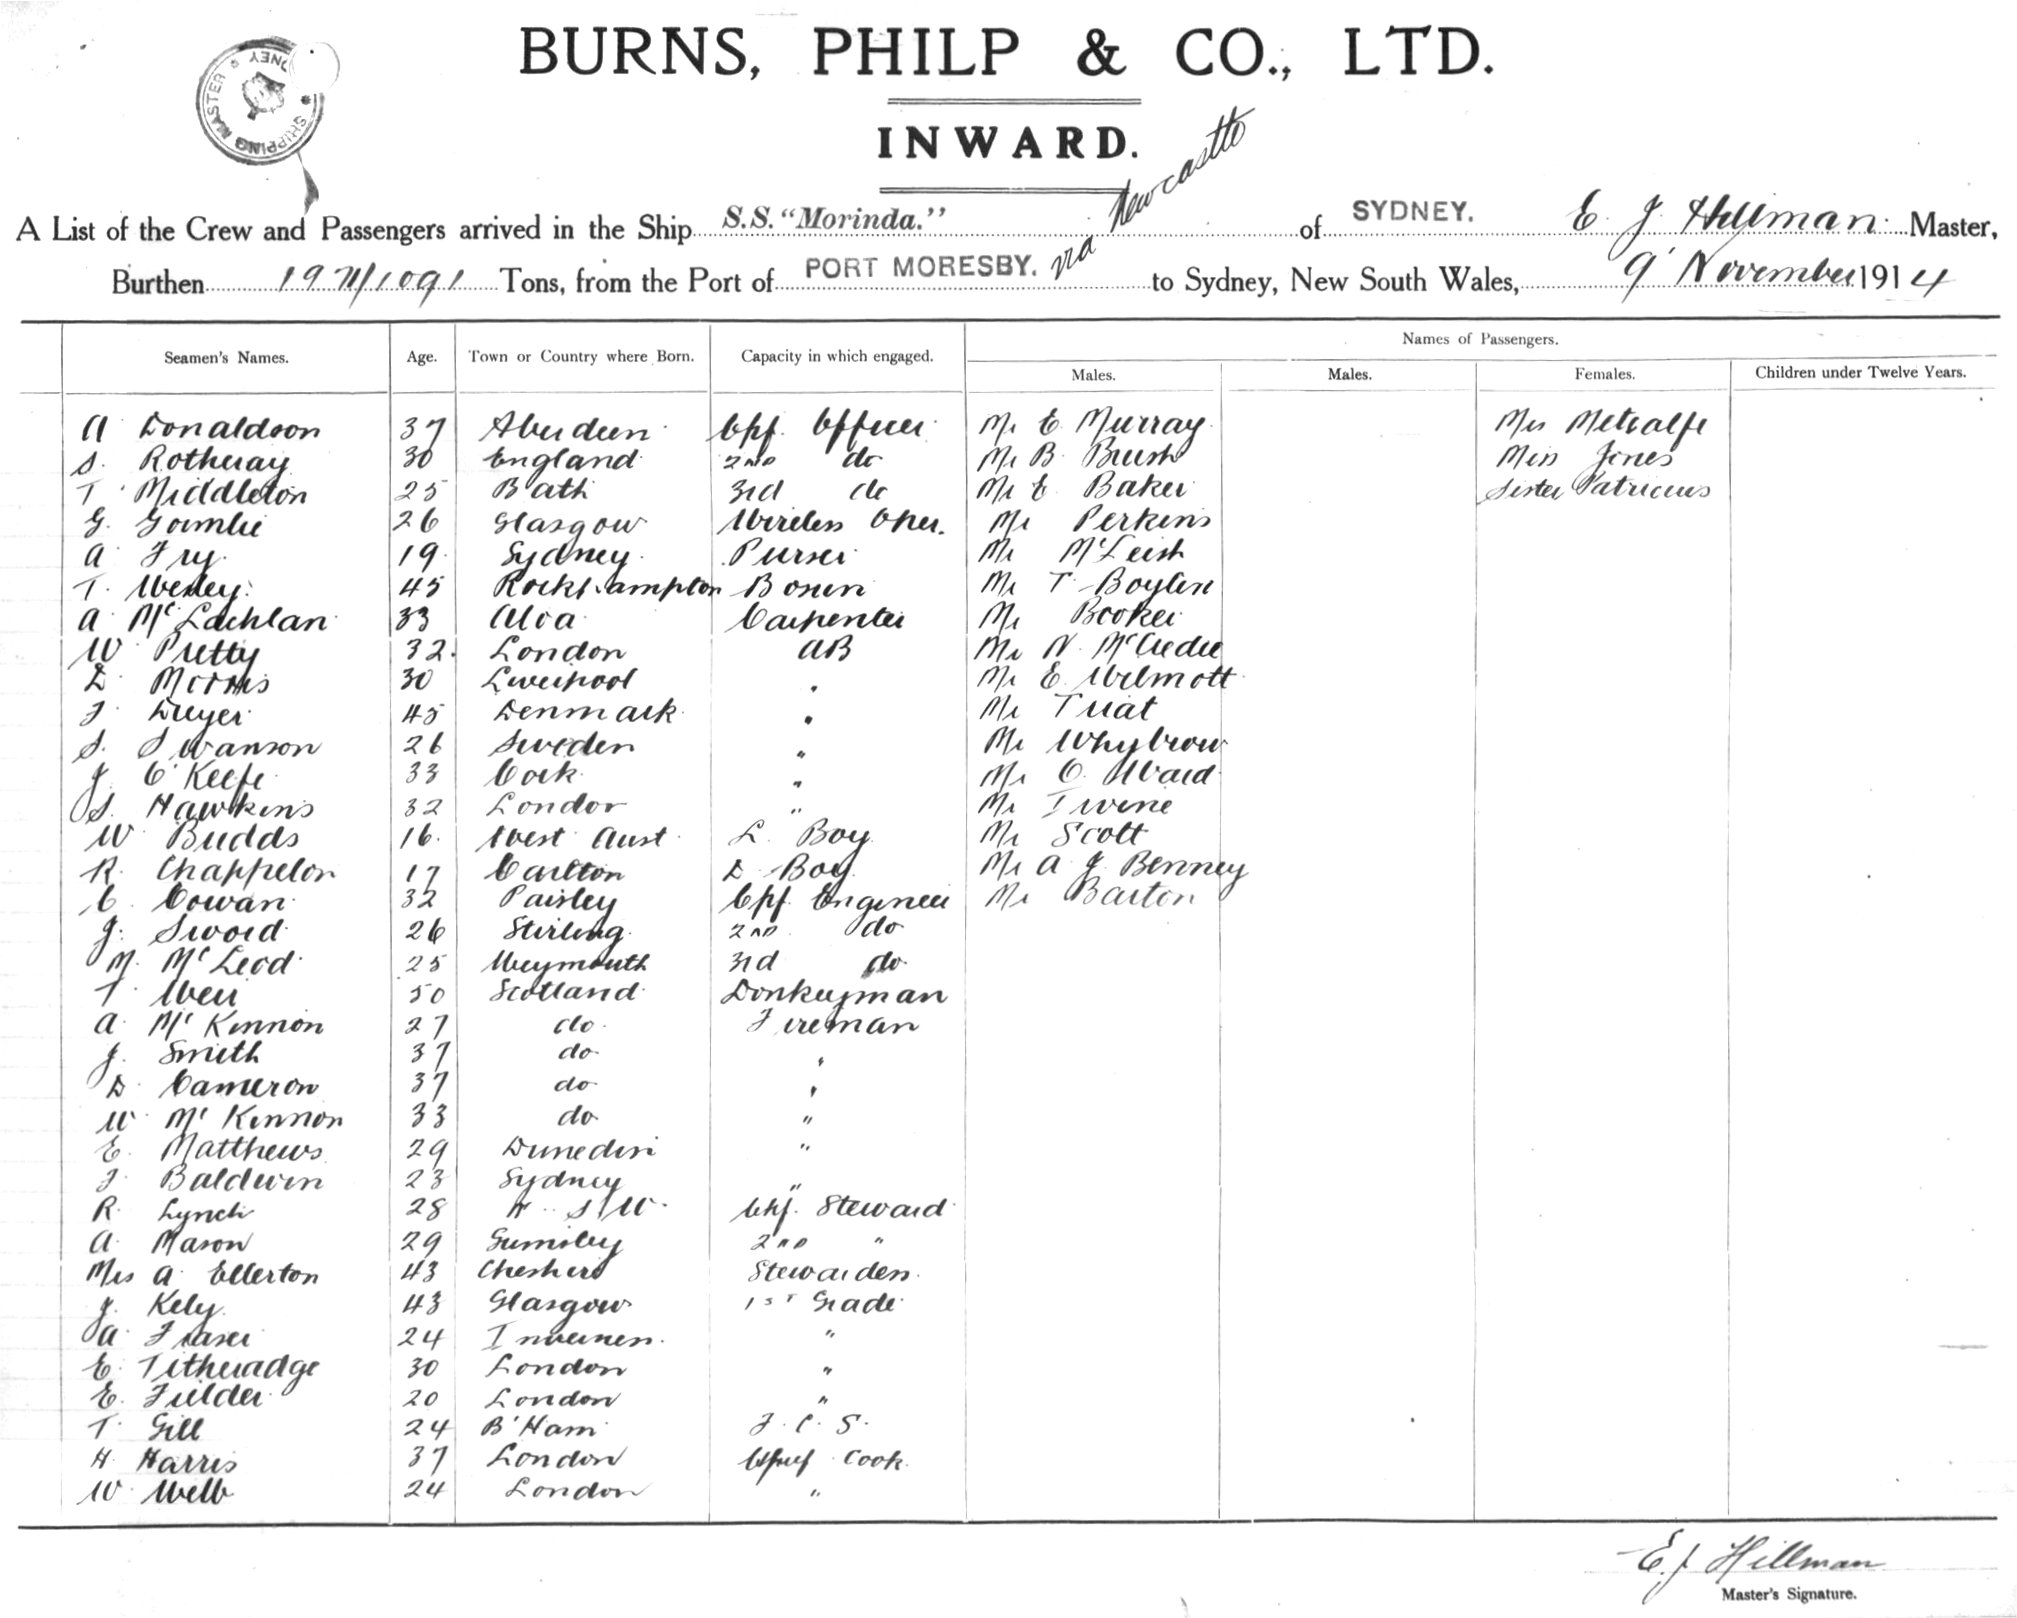 BURNS, PHILP & CO., LTD.
SHIPPING MASTER * SYDNEY *
INWARD.
A List of the Crew and Passengers arrived in the Ship S.S. "Morinda." via Newcastle of SYDNEY. E. J. Hillman Master,
Burthen 1971/1091 Tons, from the Port of PORT MORESBY. to Sydney, New South Wales, 9' November 1914
Names of Passengers.
Seamen's Names. Age. Town or Country where Born. Capacity in which engaged. Males. Males. Females. Children under Twelve Years.
A Donaldson 37 Aberdeen Chf. Officer Mr E Murray Mrs Metcalfe
S. Rotheray 30 England 2nd do Mr B Brush Miss Jones
T Middleton 25 Bath 3rd do Mr E Baker Sister Patricius
G. Gamlie 26 Glasgow Wireless Oper. Mr Perkins
A Fry 19 Sydney Purser Mr McLeish
T. Wesley 45 Rockhampton Bosun Mr T Boylen
A McLachlan 33 Aloa Carpenter Mr Brooker
W Pretty 32 London AB Mr N. McCredie
D Morris 30 Liverpool " Mr E Wilmott
J Dreyer 45 Denmark " Mr Triat
S. Swanson 26 Sweden " Mr Whybrow
J O'Keefe 33 Cork " Mr C. Ward
S. Hawkins 32 London " Mr Irvine
W Budds 16 West Aust L Boy Mr Scott
R. Chappelon 17 Carlton D Boy Mr A J Benney
C. Cowan 32 Paisley Chf Engineer Mr Barton
J. Sword 26 Stirling 2nd do
M. McLeod 25 Weymouth 3rd do
T Weir 50 Scotland Donkeyman
A McKinnon 27 do Fireman
J. Smith 37 do "
D Cameron 37 do "
W McKinnon 33 do "
E. Matthews 29 Dunedin "
J. Baldwin 23 Sydney "
R. Lynch 28 N. S W. Chf. Steward
A Mason 29 Grimsby 2nd "
Mrs A Ellerton 43 Cheshire Stewardess
J. Kely 43 Glasgow 1st Grade
A Fraser 24 Inverness "
E. Titheradge 30 London "
E. Fielder 20 London "
T. Gill 24 B'Ham F. C. S.
H Harris 37 London Chief Cook
W Webb 24 London "
E. J. Hillman
Master's Signature.